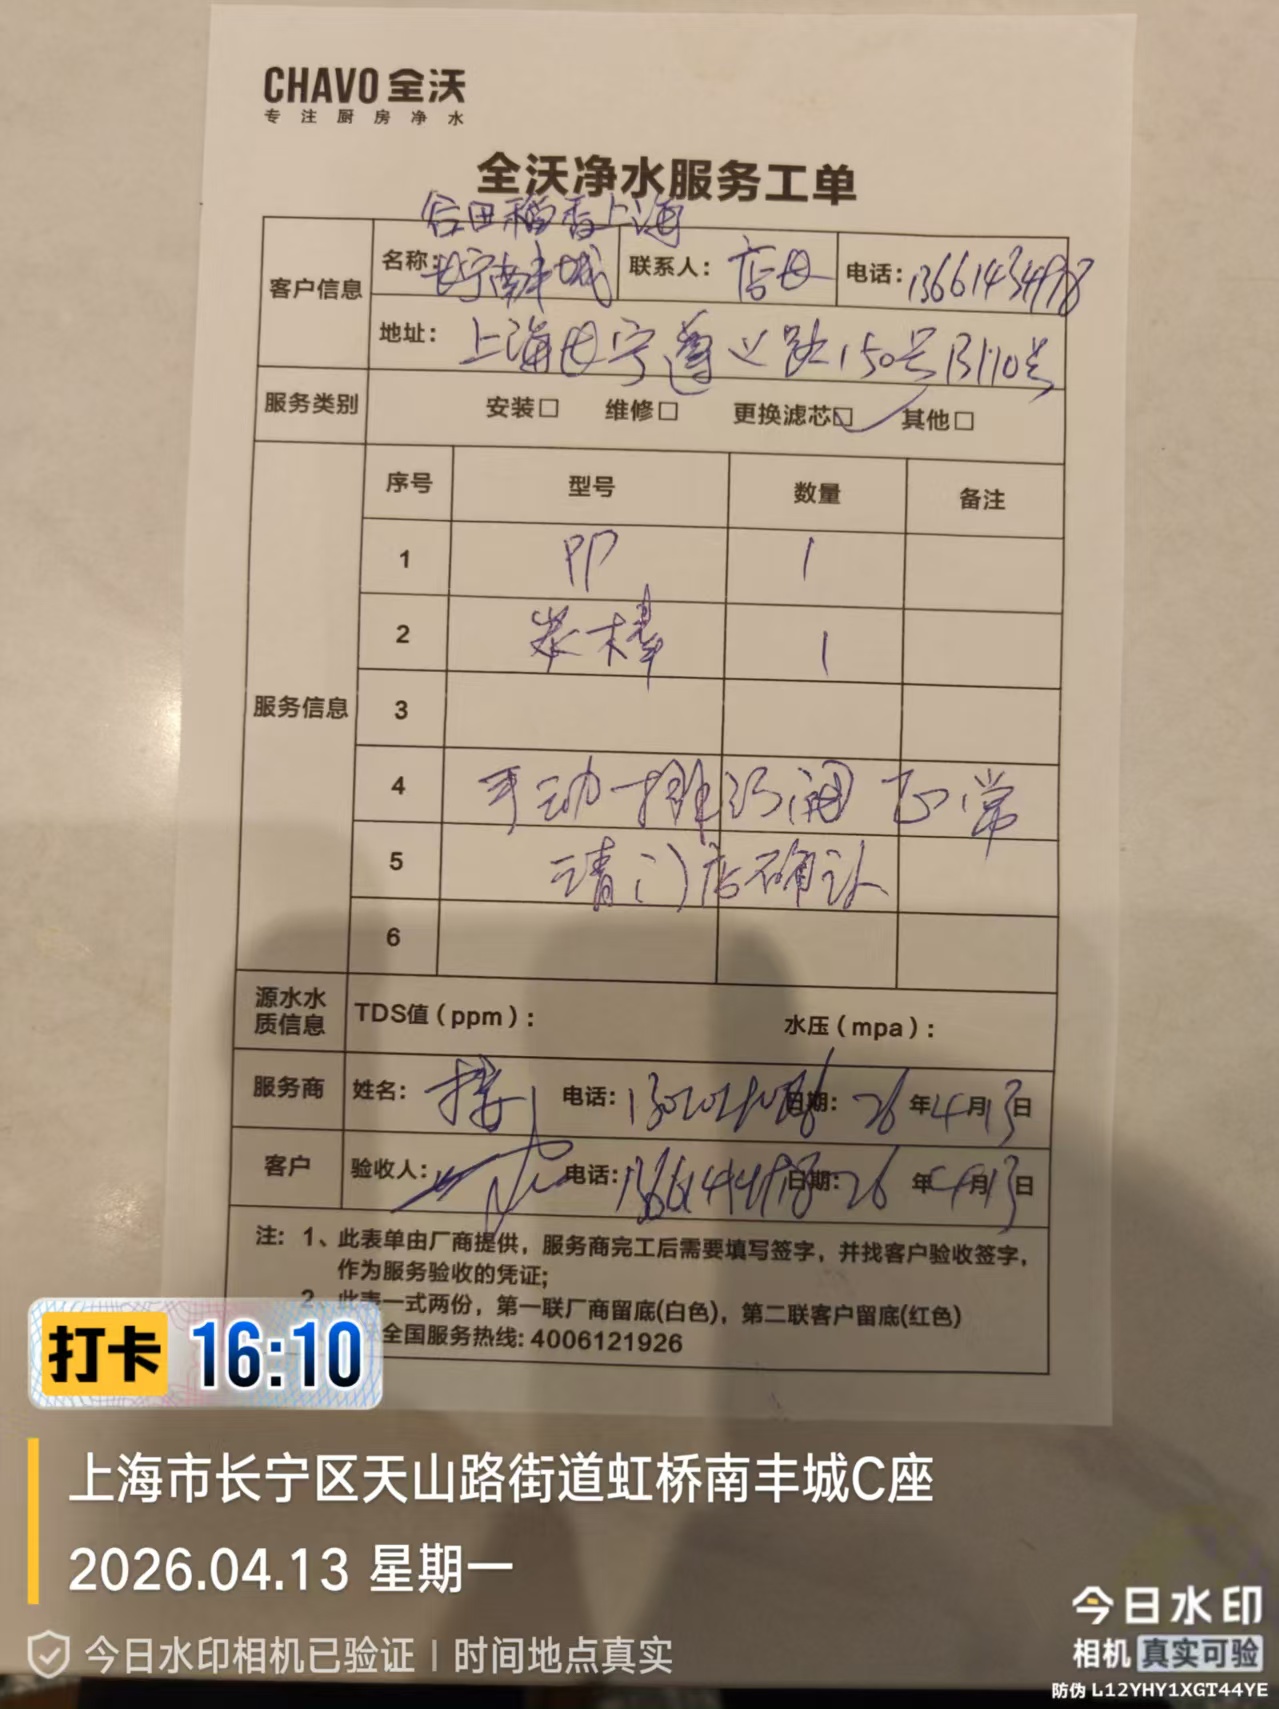 CHAVO 全沃
专注厨房净水
全沃净水服务工单
谷田稻香上海
客户信息 名称: 长宁南丰城 联系人: 店长 电话:
地址: 上海长宁遵义路150号B110号
服务类别 安装□ 维修□ 更换滤芯☑ 其他□
服务信息 序号 型号 数量 备注
1 PP 1
2 炭棒 1
3
4 手动排污阀 正常
5 请门店确认
6
源水水质信息 TDS值(ppm): 水压(mpa):
服务商 姓名: 电话: 日期: 26年4月13日
客户 验收人: 电话: 日期: 26年4月13日
注: 1、此表单由厂商提供，服务商完工后需要填写签字，并找客户验收签字，
作为服务验收的凭证;
2、此表一式两份，第一联厂商留底(白色)，第二联客户留底(红色)
全国服务热线: 4006121926
打卡 16:10
上海市长宁区天山路街道虹桥南丰城C座
2026.04.13 星期一
今日水印相机已验证 | 时间地点真实
今日水印
相机 真实可验
防伪 L12YHY1XGT44YE